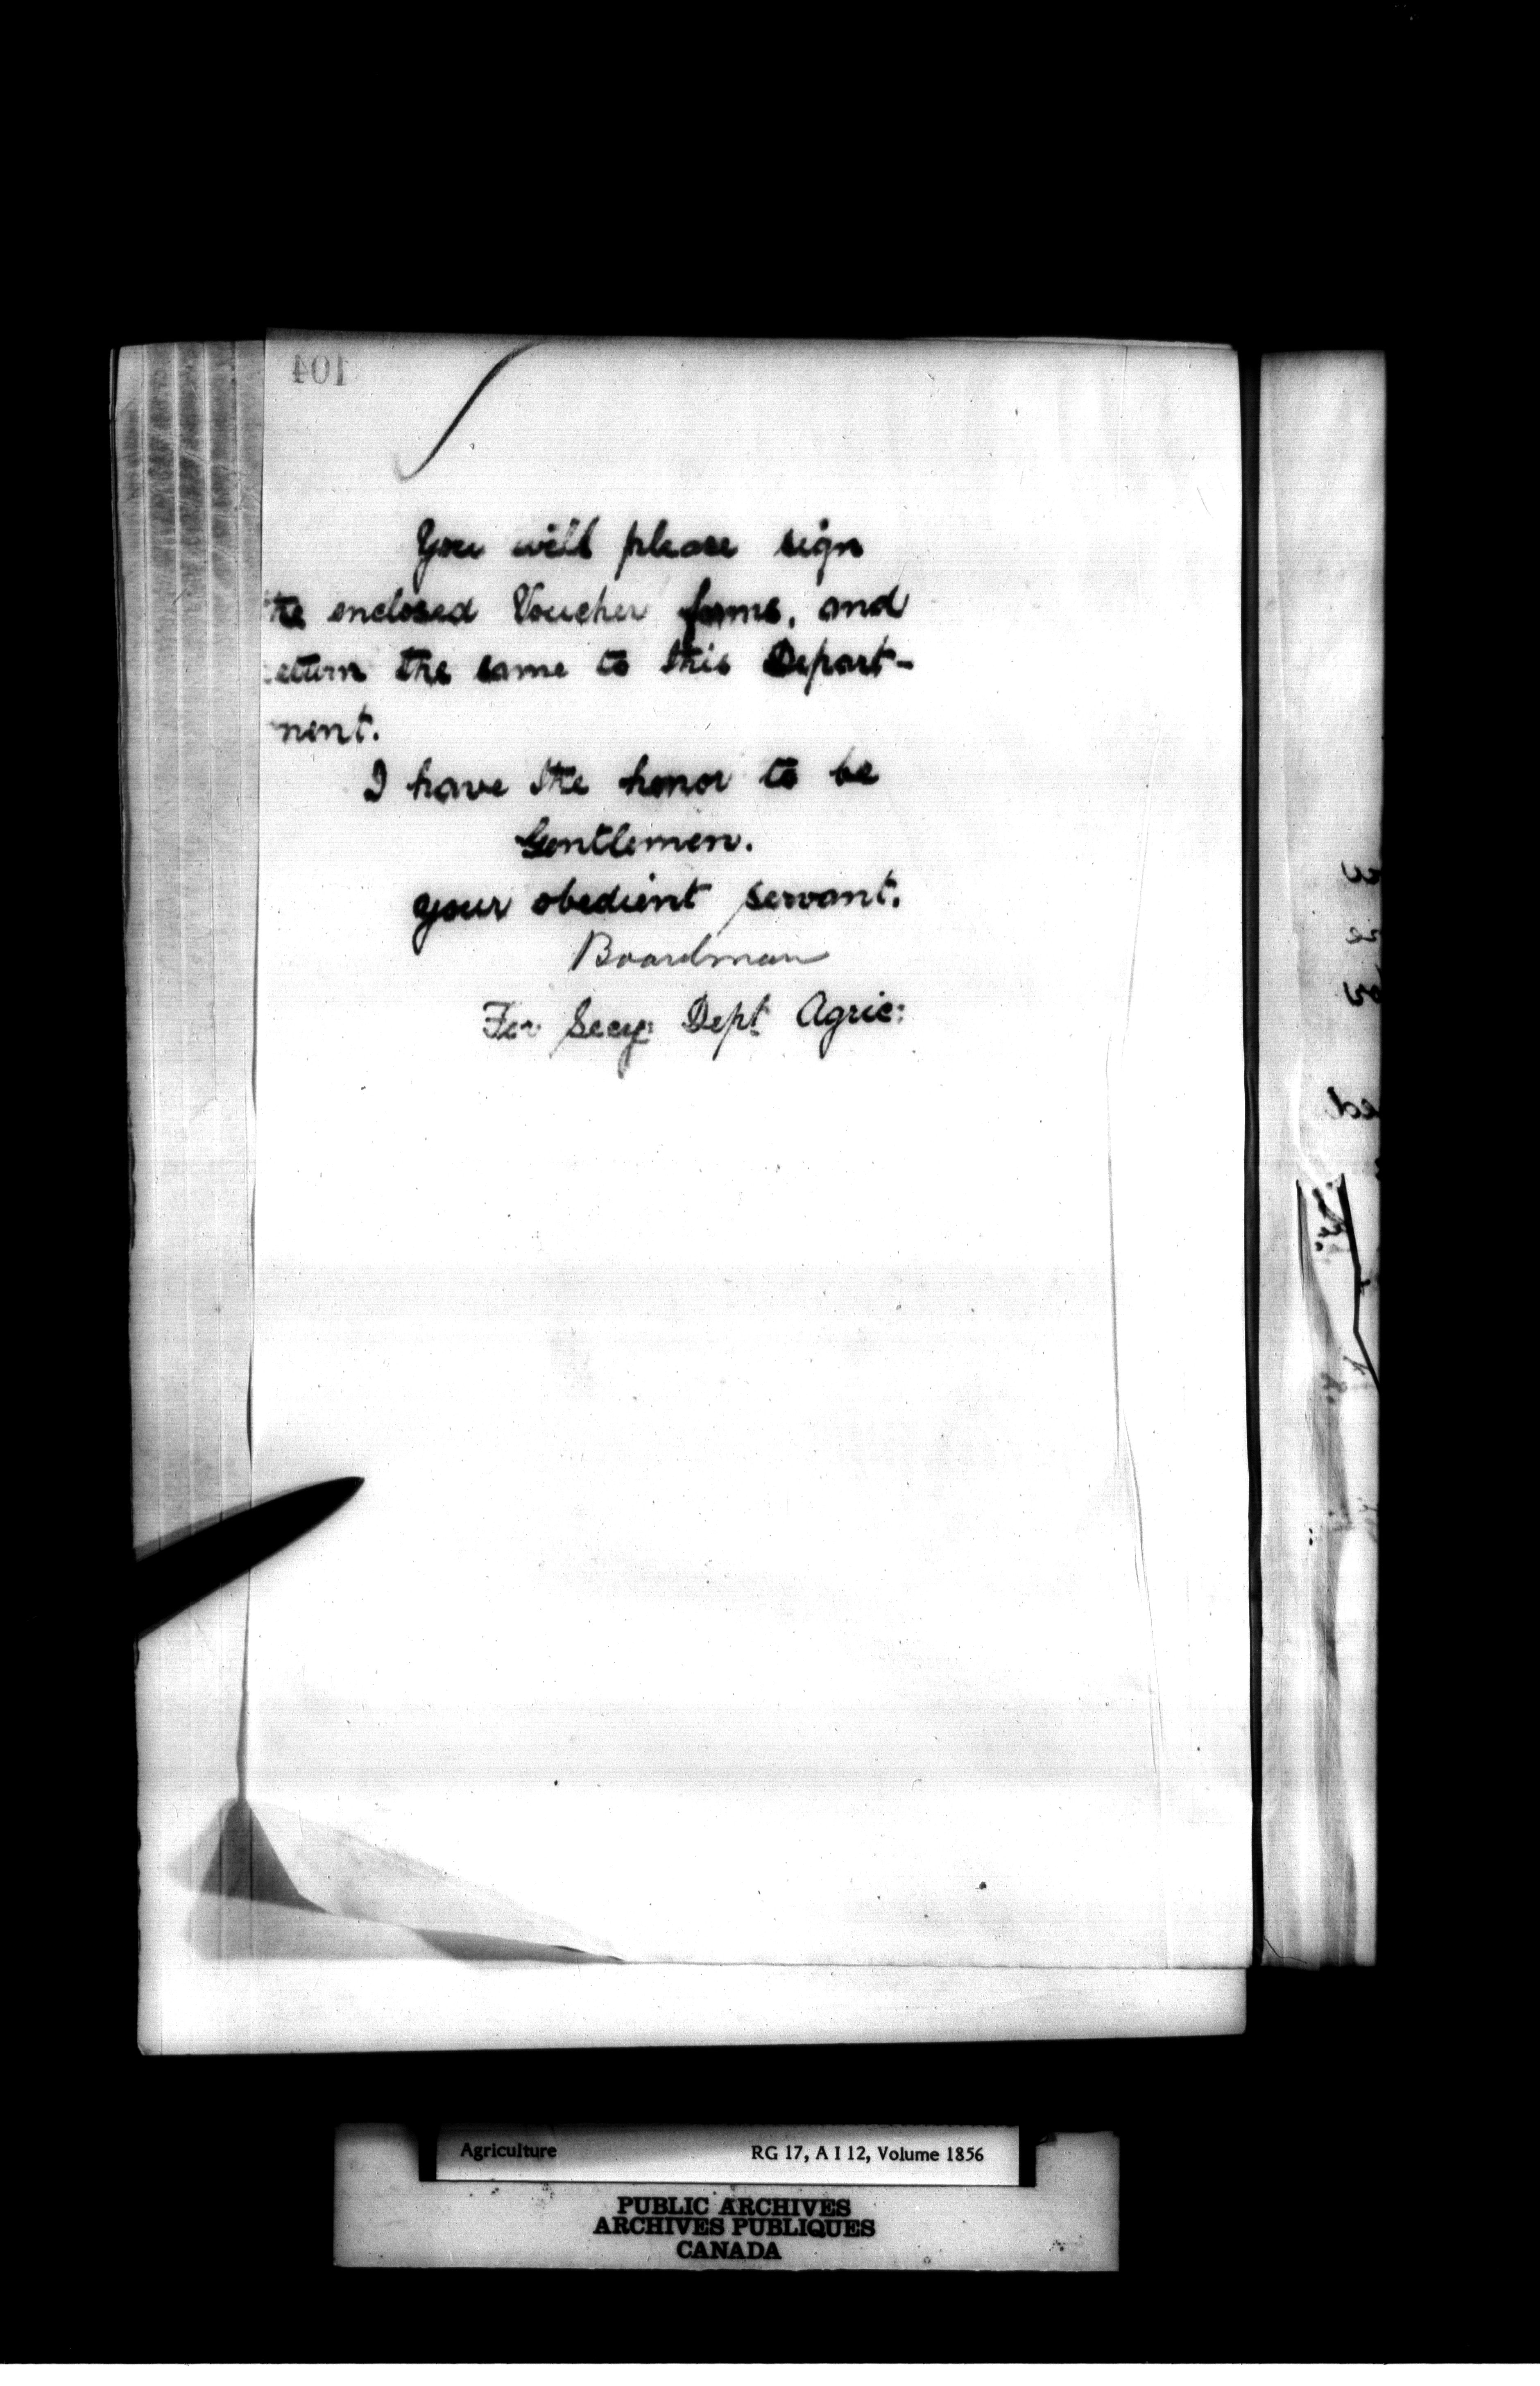 104
You will please sign
the enclosed Voucher forms, and
eturn the same to this Depart-
ment.
I have the honor to be
Gentlemen.
your obedient servant.
Boardman
For Secy: Dept Agric:
Agriculture RG 17, A I 12, Volume 1856
PUBLIC ARCHIVES
ARCHIVES PUBLIQUES
CANADA